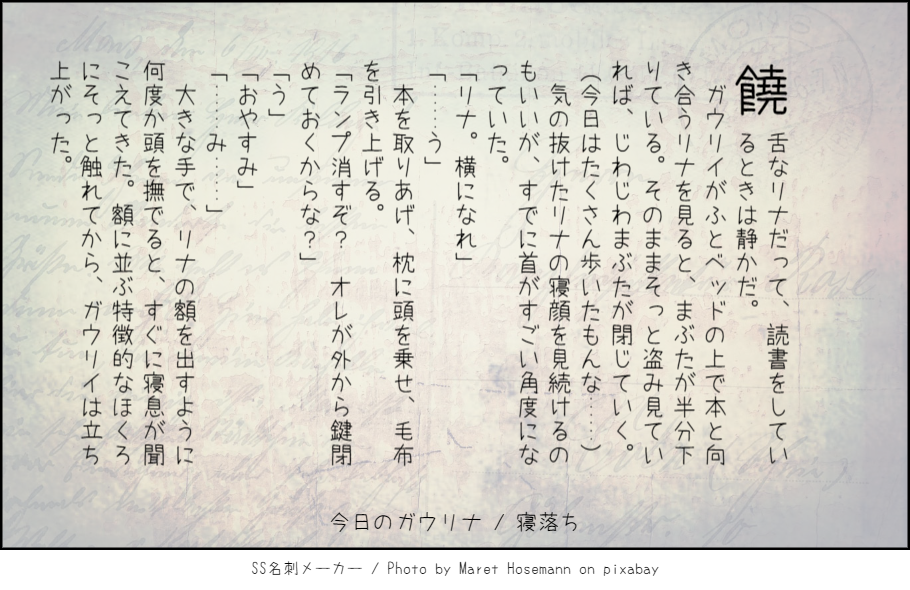 饒舌なリナだって、読書をしてい
るときは静かだ。
　ガウリイがふとベッドの上で本と向
き合うリナを見ると、まぶたが半分下
りている。そのままそっと盗み見てい
れば、じわじわまぶたが閉じていく。
（今日はたくさん歩いたもんな……）
　気の抜けたリナの寝顔を見続けるの
もいいが、すでに首がすごい角度にな
っていた。
「リナ。横になれ」
「……う」
　本を取りあげ、枕に頭を乗せ、毛布
を引き上げる。
「ランプ消すぞ？　オレが外から鍵閉
めておくからな？」
「う」
「おやすみ」
「……み……」
　大きな手で、リナの額を出すように
何度か頭を撫でると、すぐに寝息が聞
こえてきた。額に並ぶ特徴的なほくろ
にそっと触れてから、ガウリイは立ち
上がった。
今日のガウリナ / 寝落ち
SS名刺メーカー / Photo by Maret Hosemann on pixabay